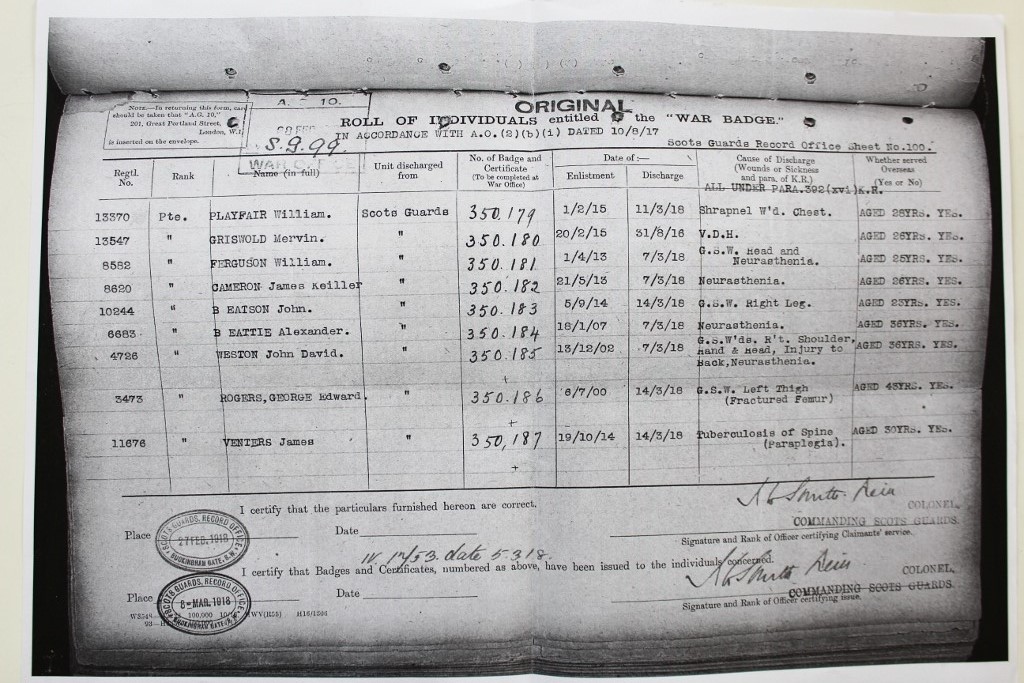 NOTE.—In returning this form, care
should be taken that "A.G. 10,"
201, Great Portland Street,
London, W.1
is inserted on the envelope.
A. 10.
S.G.99.
WAR OFFICE
ORIGINAL
ROLL OF INDIVIDUALS entitled to the "WAR BADGE."
IN ACCORDANCE WITH A.O.(2)(b)(i) DATED 10/8/17
Scots Guards Record Office Sheet No.100.
Regtl. No. Rank Name (in full) Unit discharged from No. of Badge and Certificate (To be completed at War Office) Date of:— Enlistment Discharge Cause of Discharge (Wounds or Sickness and para. of K.R.) Whether served Overseas (Yes or No)
ALL UNDER PARA.392(xvi)K.R.
13370 Pte. PLAYFAIR William. Scots Guards 350.179 1/2/15 11/3/18 Shrapnel W'd. Chest. AGED 28YRS. YES.
13547 " GRISWOLD Mervin. " 350.180 20/2/15 31/8/16 V.D.H. AGED 26YRS. YES.
8582 " FERGUSON William. " 350.181 1/4/13 7/3/18 G.S.W. Head and Neurasthenia. AGED 25YRS. YES.
8620 " CAMERON James Keiller " 350.182 21/5/13 7/3/18 Neurasthenia. AGED 26YRS. YES.
10244 " B EATSON John. " 350.183 5/9/14 14/3/18 G.S.W. Right Leg. AGED 23YRS. YES.
6683 " B EATTIE Alexander. " 350.184 18/1/07 7/3/18 Neurasthenia. AGED 36YRS. YES.
4726 " WESTON John David. " 350.185 13/12/02 7/3/18 G.S.W'ds. R't. Shoulder, Hand & Head, Injury to Back,Neurasthenia. AGED 36YRS. YES.
3473 " ROGERS,GEORGE Edward. 350.186 6/7/00 14/3/18 G.S.W. Left Thigh (Fractured Femur) YES.
11676 " VENTERS James " 350,187 19/10/14 14/3/18 Tuberculosis of Spine (Paraplegia). AGED 30YRS. YES.
I certify that the particulars furnished hereon are correct.
COLONEL,
COMMANDING SCOTS GUARDS.
Place Date
SCOTS GUARDS, RECORD OFFICE
27 FEB. 1918
BUCKINGHAM GATE, S.W.
Signature and Rank of Officer certifying Claimants' service.
I certify that Badges and Certificates, numbered as above, have been issued to the individuals concerned.
COLONEL,
COMMANDING SCOTS GUARDS
Place Date
SCOTS GUARDS, RECORD OFFICE
8-MAR.1918
Signature and Rank of Officer certifying issue.